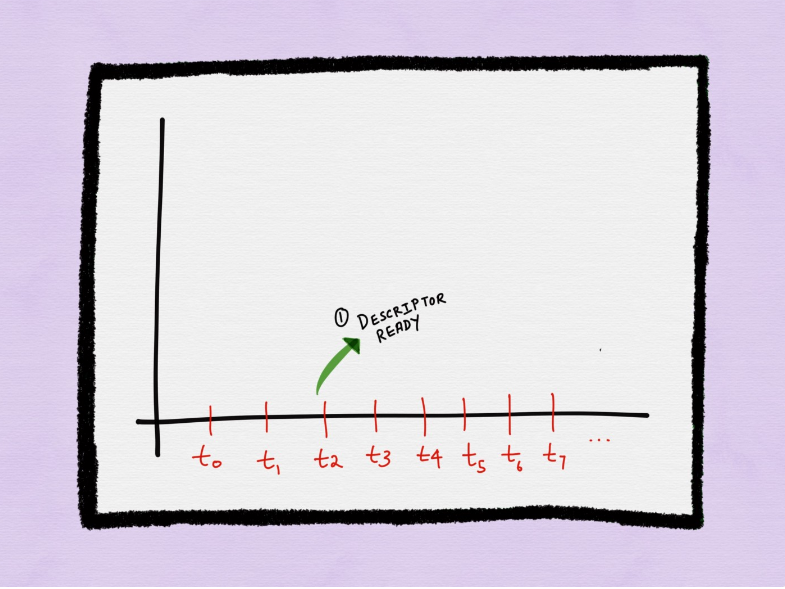 ① DESCRIPTOR
READY
t₀ t₁ t₂ t₃ t₄ t₅ t₆ t₇ ...